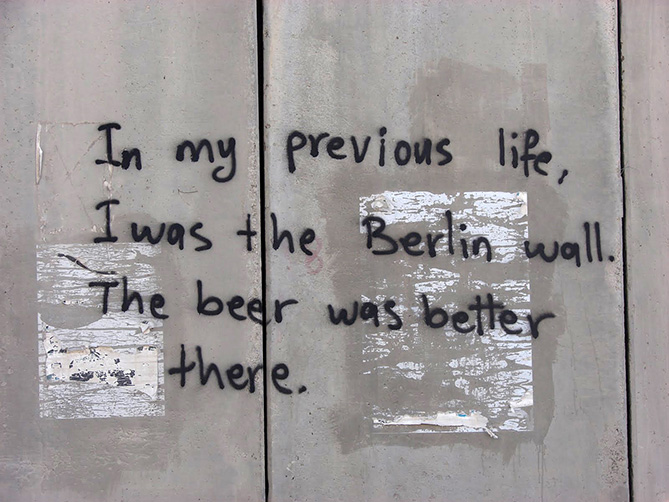 In my previous life,
I was the Berlin wall.
The beer was better
there.